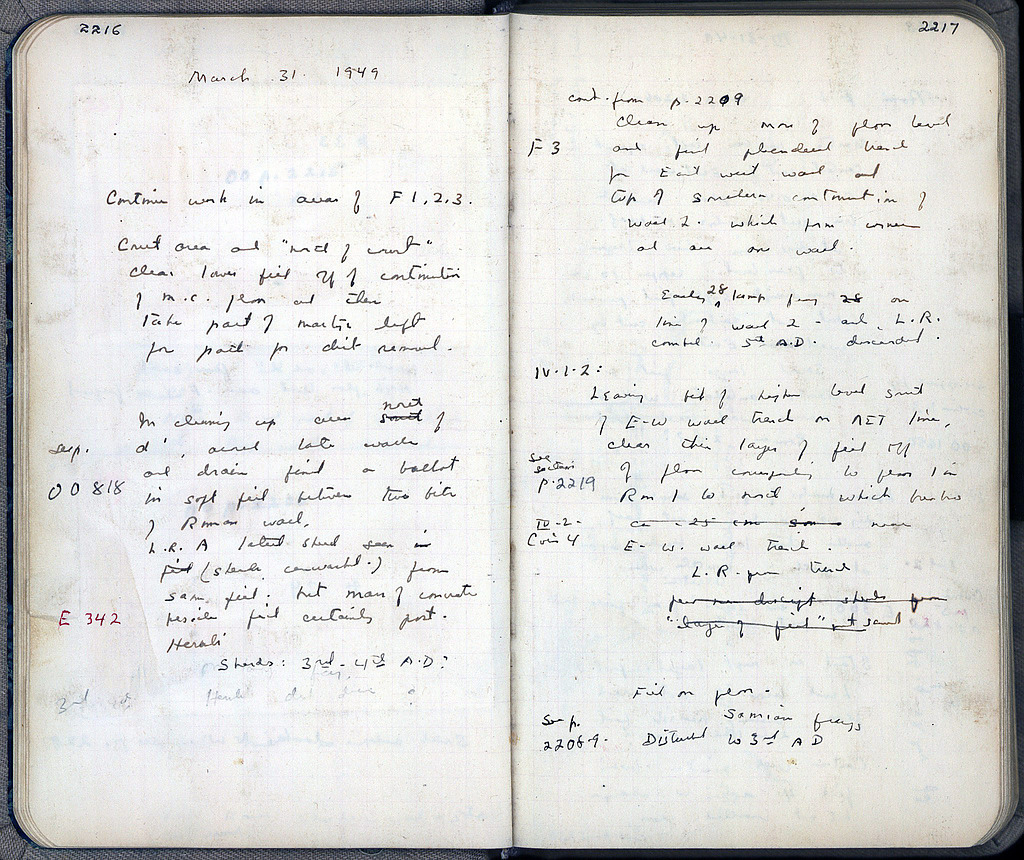 2216
March 31. 1949
Continue work in areas of F 1, 2, 3.
Court area and "north of court"
clear lower fill off of continuation
of m.c. floor and then
Take part of martyr left
for path for dirt removal.
In cleaning up area south north of
sep. d', across late wall
and drain find a ballot
OO 818 in soft fill between two bits
of Roman wall.
L.R. A lated sherd seen in
fill (sherds conwasht.) from
same fill. but mass of concrete
E 342 beside fill certainly post.
Heruli
Sherds: 3rd - 4th A.D.
3rd
2217
cont. from p. 2209
Clean up more of floor level
F 3 and find trench
for East west wall and
top of southern continuation of
wall 2. which form corner
and are one wall.
Early 28 lamp frag 28 on
line of wall 2 - and L.R.
combed. 5th A.D. discarded.
IV-1-2:
Leaving bit of higher level south
of E-W wall trench on AET line,
clear thin layer of fill off
see section of floor corresponding to floor 1 in
p. 2219 Rm 1 to north which breaks
IV-2- ca .25 cm south near
Coin 4 E-W. wall trench.
L.R. from trench
few non descript sherds from
"layer of fill" just south
Fill on floor.
See p. Samian frags
2208-9. Disturbed to 3rd AD